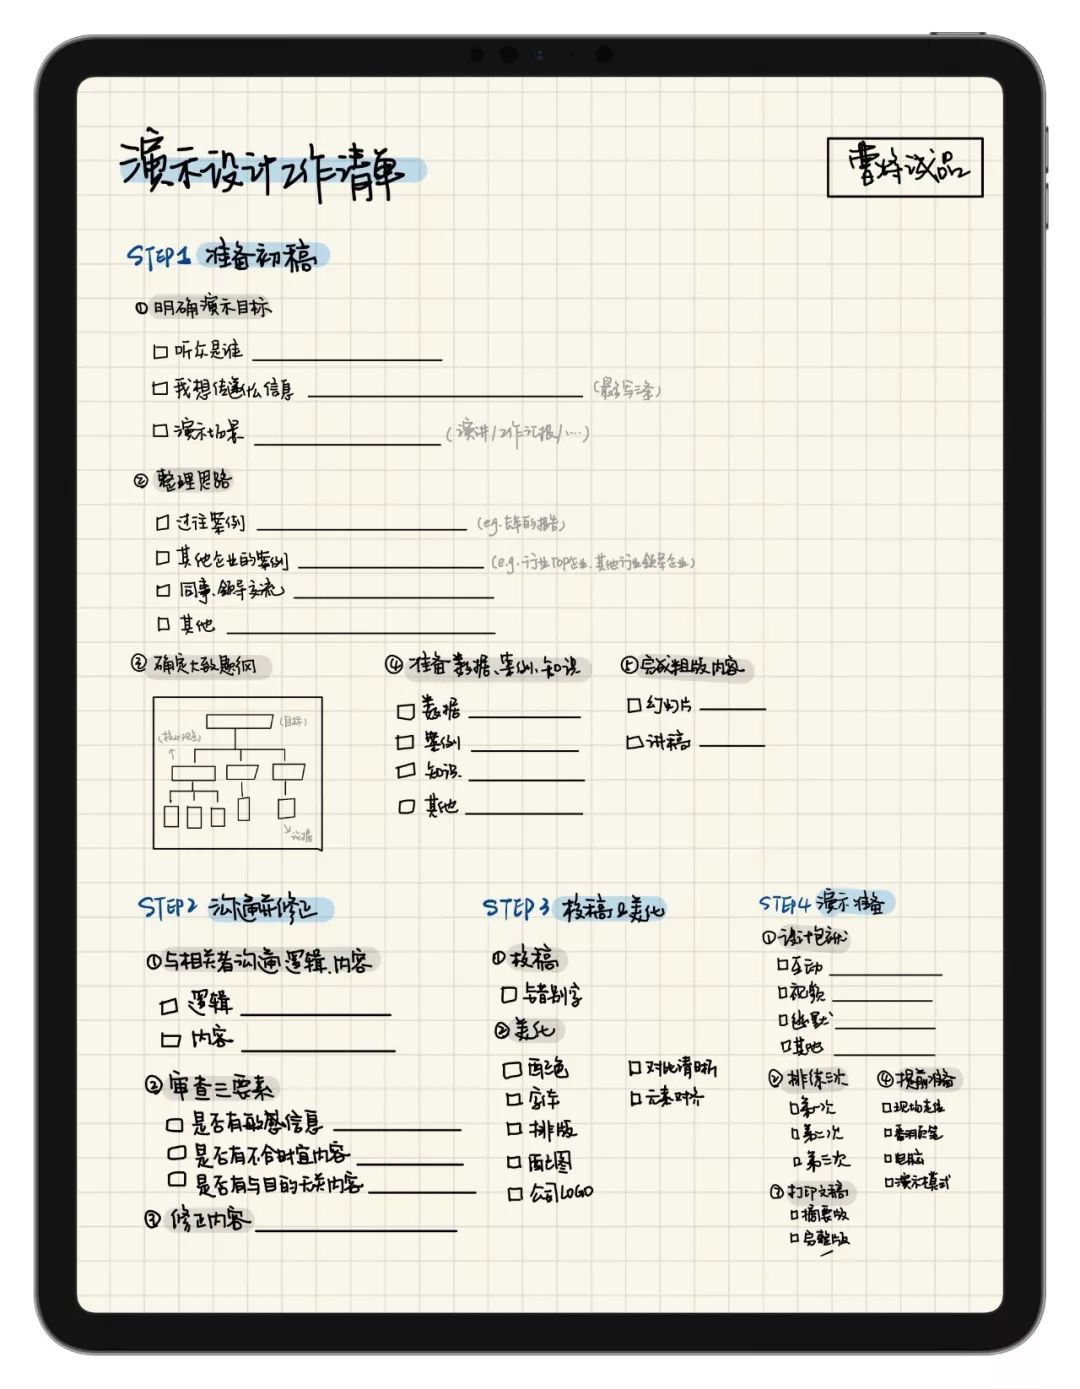 演示设计工作清单
曹将诚品
STEP1 准备初稿
① 明确演示目标
听众是谁
我想传递什么信息 (最多写三条)
演示场景 (演讲/工作汇报/…)
② 整理思路
过往案例 (eg.去年的报告)
其他企业的案例 (e.g.行业TOP企业、其他行业领导企业)
同事、领导交流
其他
③ 确定大致思纲
(目标)
(核心观点)
论据
④ 准备数据、案例、知识
数据
案例
知识
其他
⑤ 完成粗版内容
幻灯片
讲稿
STEP2 沟通并修正
①与相关者沟通逻辑、内容
逻辑
内容
② 审查三要素
是否有敏感信息
是否有不合时宜内容
是否有与目的无关内容
③ 修正内容
STEP3 校稿及美化
① 校稿
错别字
② 美化
配色
字体
排版
配图
公司LOGO
对比清晰
元素对齐
STEP4 演示准备
①设计包袱
互动
视频
幽默
其他
② 排练三次
第一次
第二次
第三次
③ 打印文稿
摘要版
完整版
④ 提前准备
现场走位
翻页笔
电脑
演示模式